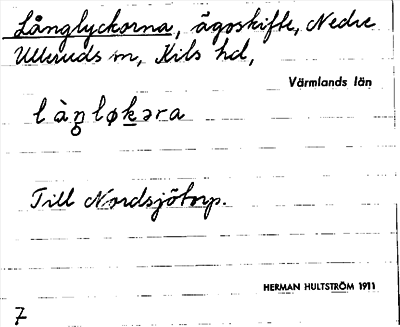 Långlyckorna, ägoskifte, Nedre
Ulleruds sn, Kils hd,
Värmlands län
làŋløkəra
Till Nordsjötorp.
HERMAN HULTSTRÖM 1911
7